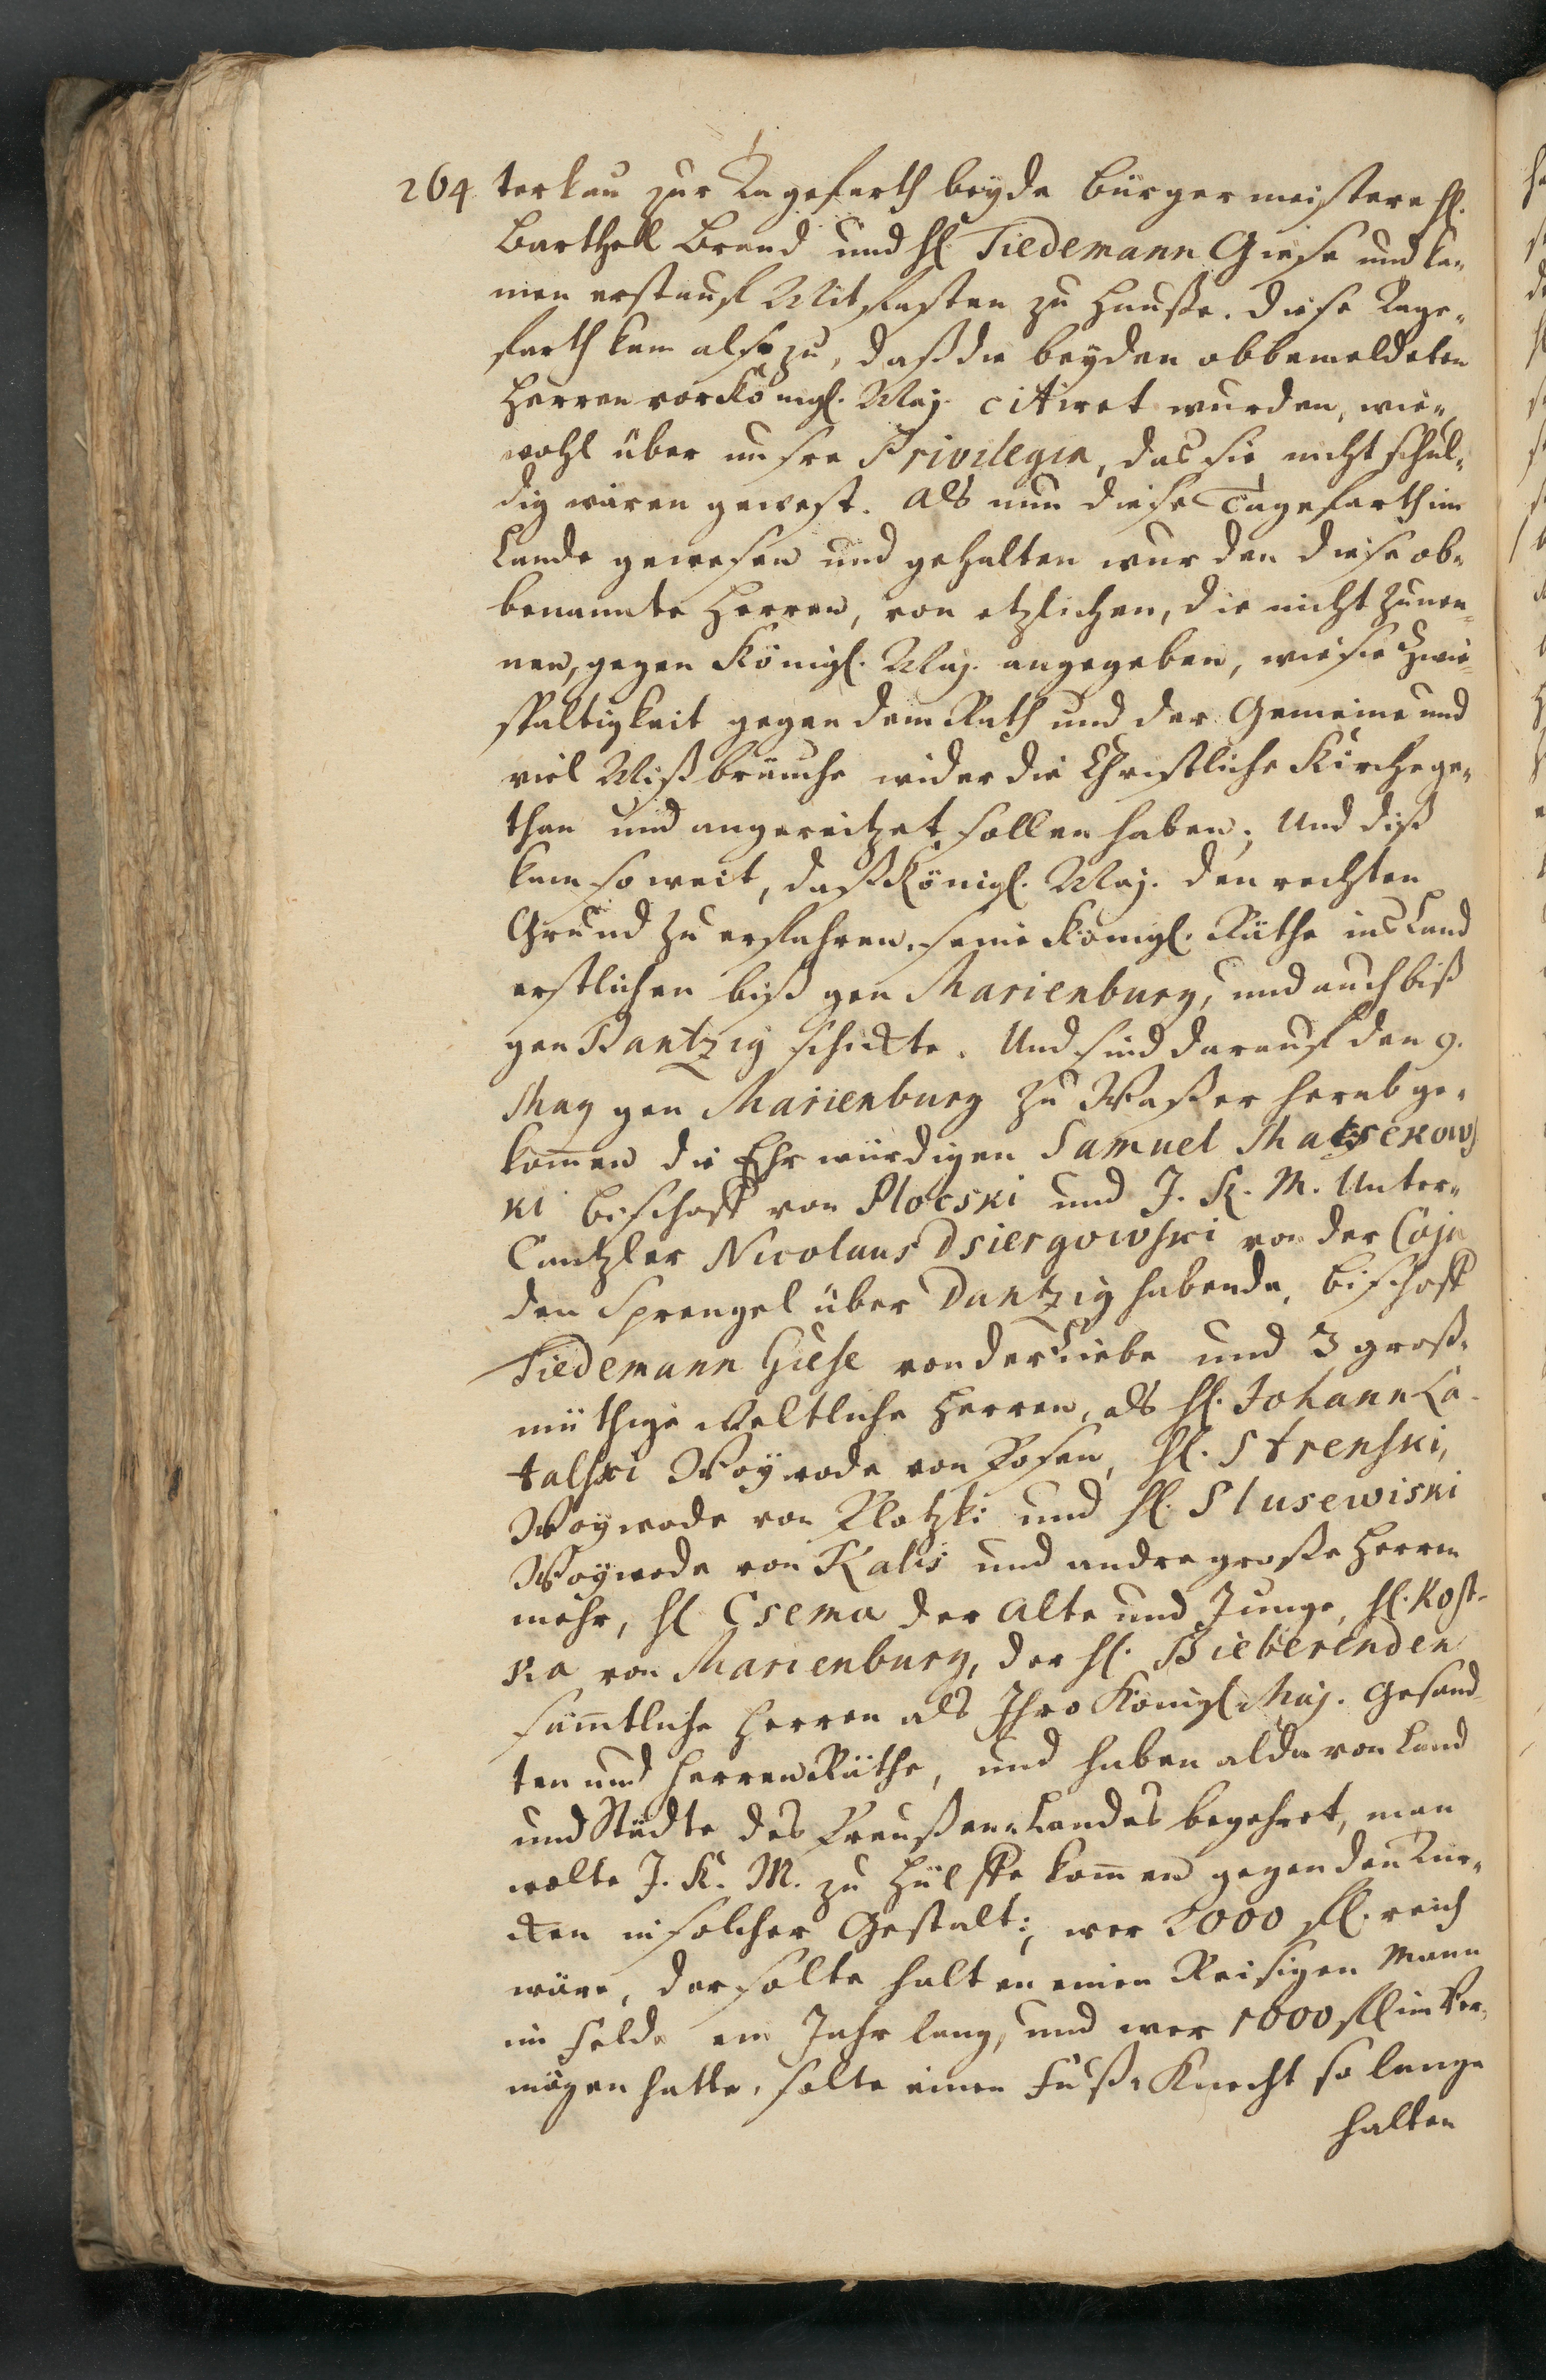 264 terkau zur Tagefarth beyde Bürgermeistere H.
Barthell Brand und H. Tiedemann Giese und ka„
men erst auf Mitfasten zu Hausse. Diese Tage„
farth kam also zu, daß die beyden obbemeldeten
Herren vor Königl. Maj. citiret wurden, wie„
wohl über unsre Privilegia, das sie nicht schul„
dig wären gewest. Als nun diese Tagefarth im
Lande gewesen und gehalten wurden diese ob„
benannte Herren, von etzlichen, die nicht zunen„
nen, gegen Königl. Maj. angegeben, wie sie Zwie„
spaltigkeit gegen dem Rath und der Gemeine und
viel Mißbräuche wider die Christliche Kirche ge„
than und angereitzet sollen haben; Und diß
kam so weit, daß Königl. Maj. den rechten
Grund zu erfahren, seine Königl. Räthe ins Land
erstlichen biß gen Marienburg, und auch biß
gen Dantzig schickte. Und sind darauf den 9.
May gen Marienburg zu Waßer herab ge„
kommen die Ehrwürdigen Samuel Matsekows
ki Bischoff von Plocski und J. K. M. Unter„
Cantzler Nicolaus Dsiergowski von der Coja
den Sprengel über Dantzig habende, Bischoff
Tiedemann Giese von der Liebe und 3 groß„
müthige Weltliche Herren, als H. Johann La-
talski Woywode von Posen, H. Strenski,
Woywode von Plotzki und H. Slusewiski
Woywode von Kalis und andre große Herren
mehr, H. Csema der Alte und Junge, H. Kost-
ka von Marienburg, der H. Bieberenden
sämtliche Herren als Ihro Königl. Maj. Gesand„
ten und Herren Räthe, und haben alda von Land
und Städte des Preußen Landes begehret, man
wolte J. K. M. zu Hülffe kommen gegen den Tür„
cken in solcher Gestalt; wer 2000 fl. reich
wäre, der solte halten einen Reisigen Mann
im Felde ein Jahr lang, und wer 1000 fl im Ver„
mögen hatte, solte einen Fuß-Knecht so lange
halten